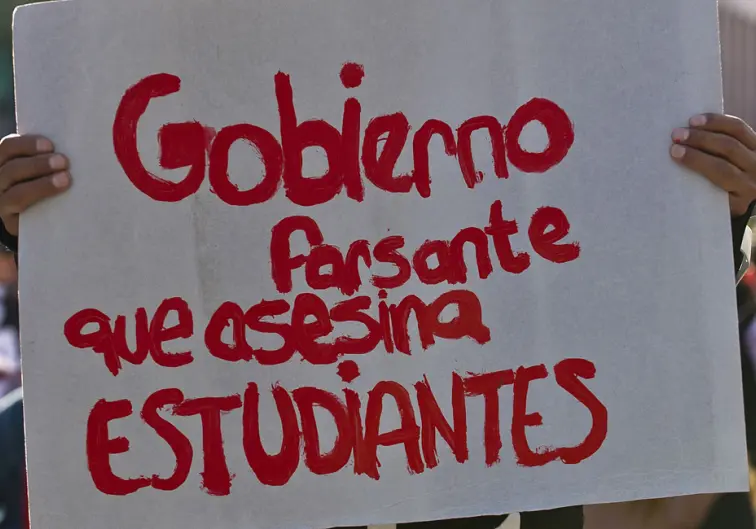 Gobierno
farsante
que asesina
ESTUDiANTES